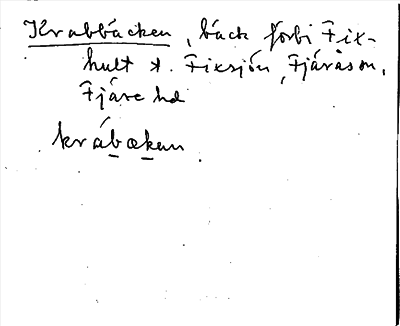 Krabbäcken, bäck förbi Fix-
hult t. Fixsjön, Fjäråsån,
Fjäre hd
krábækan